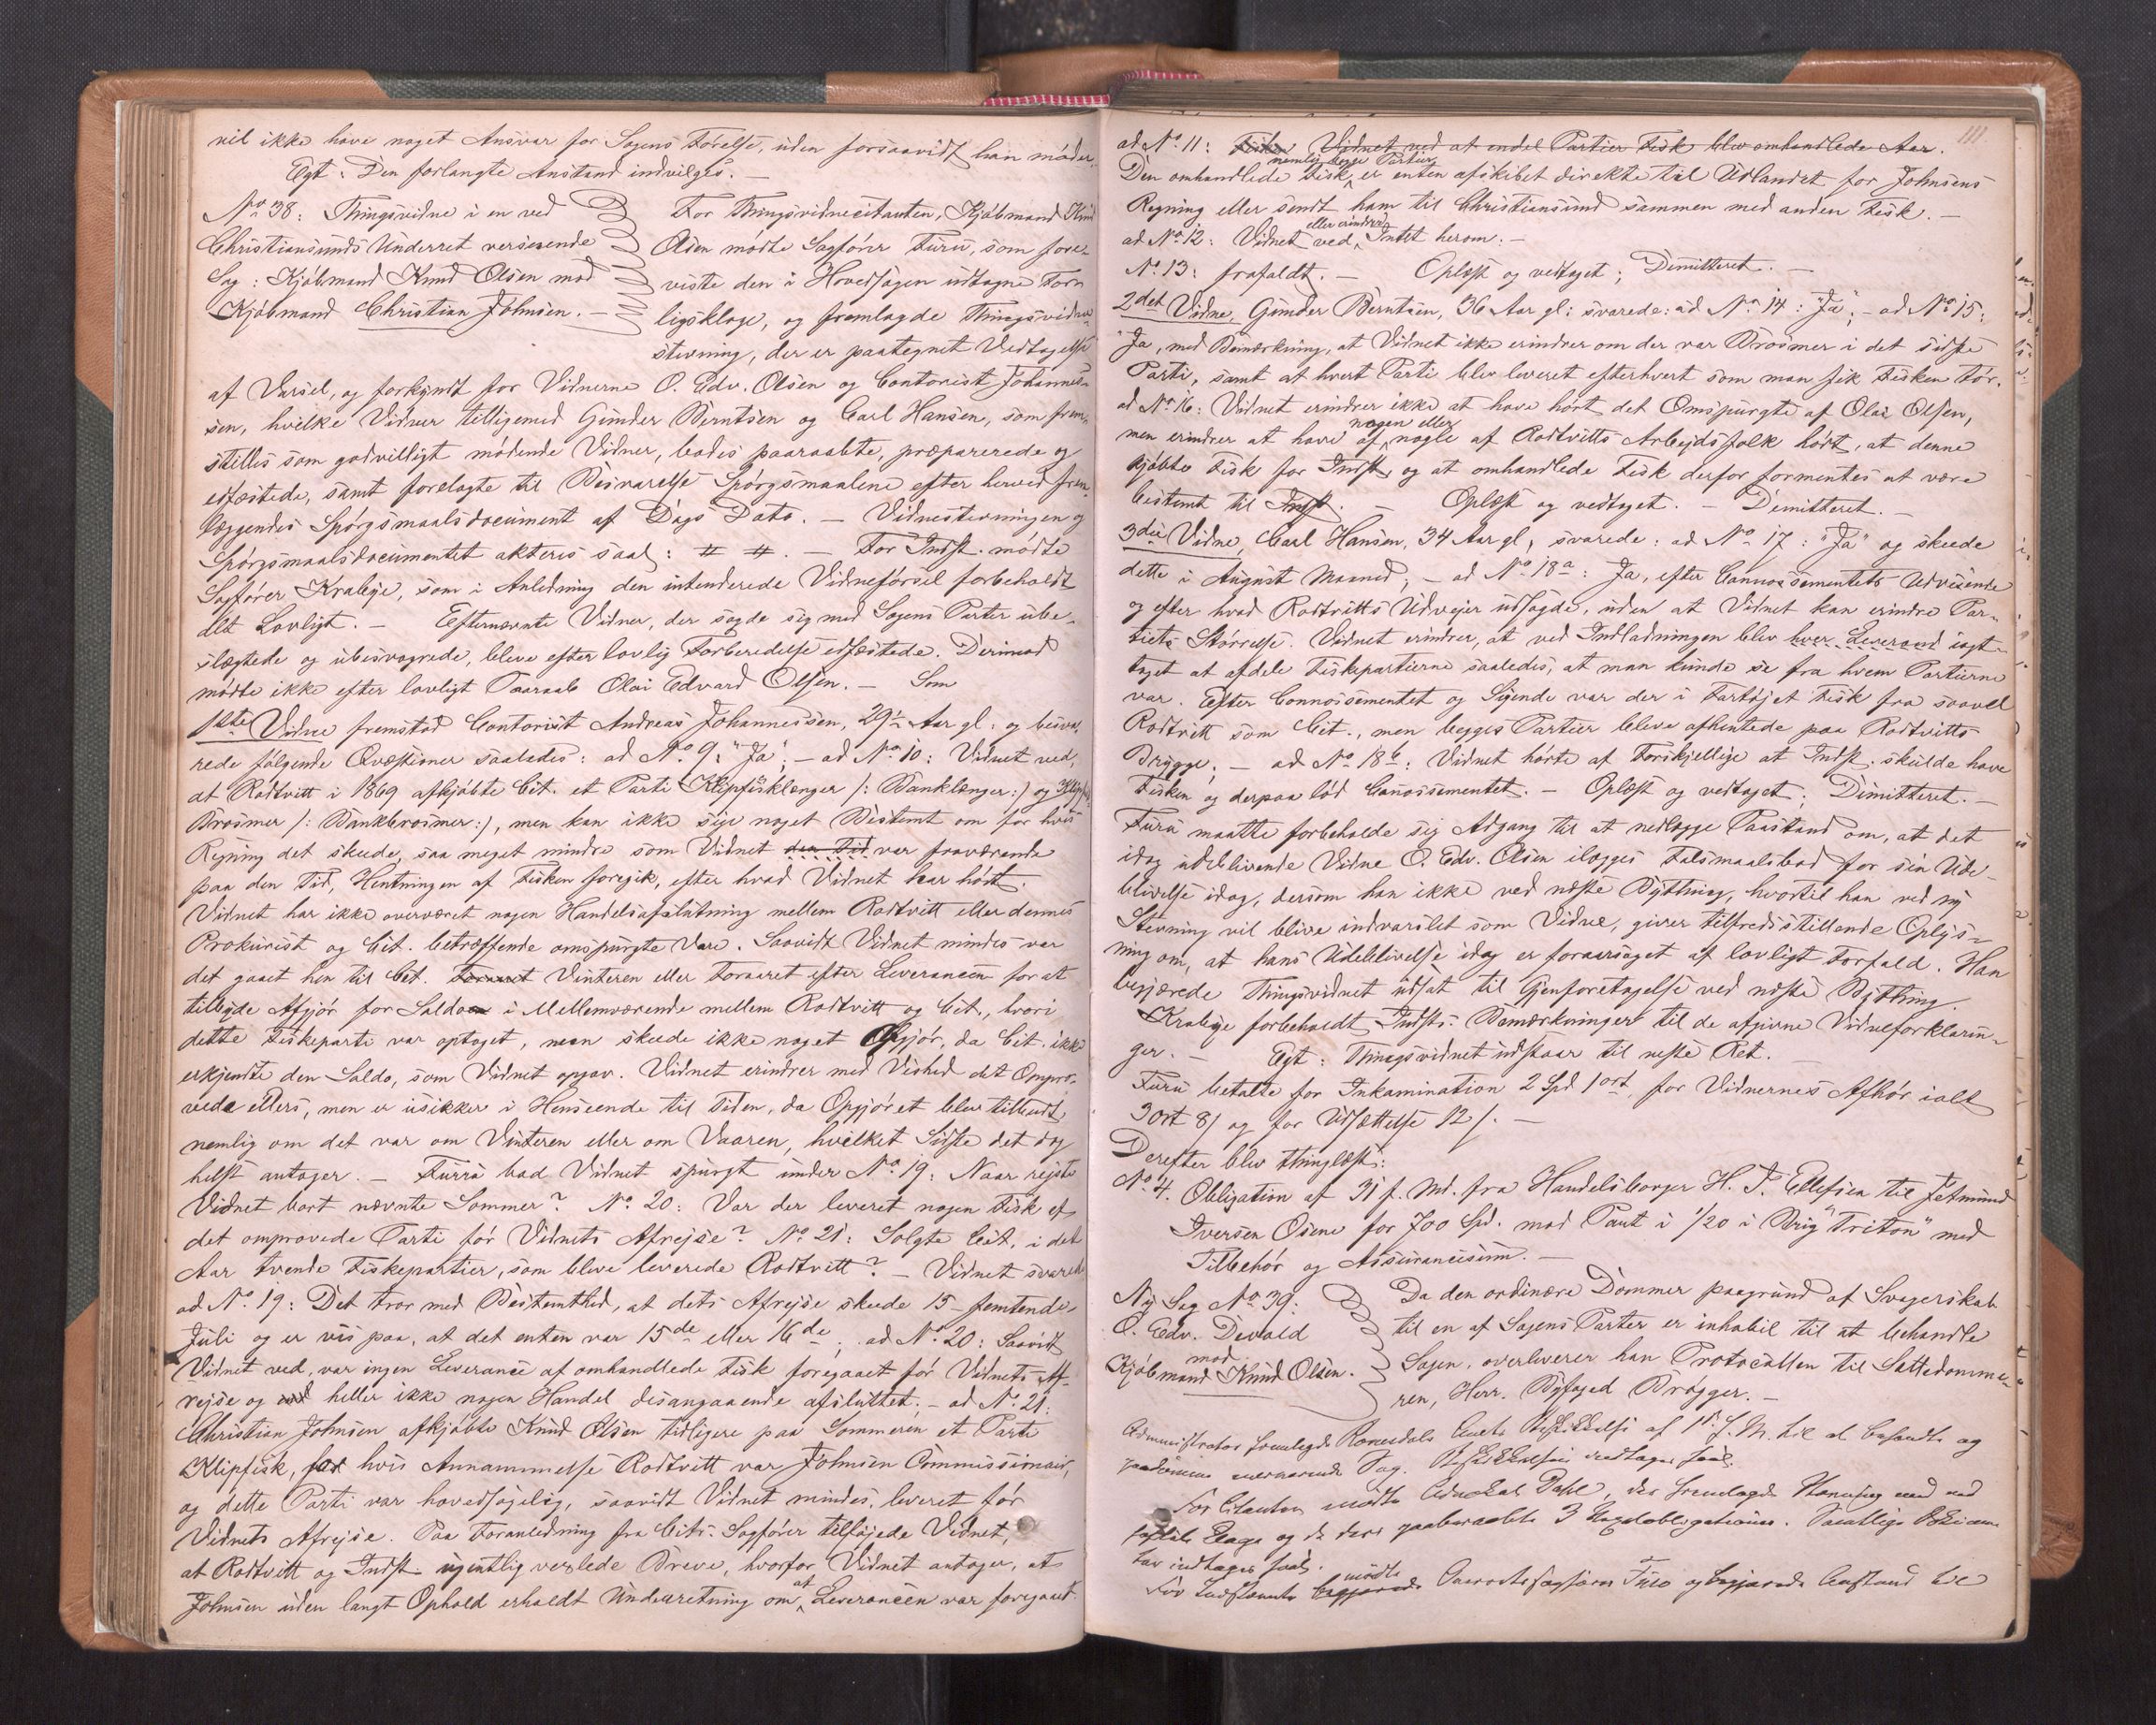 vil ikke have noget Ansvar for Sagens Førelse, uden forsaavidt han møder.
Egt: Den forlangte Anstand indvilges. —
No 38: Thingsvidne i en ved
Christiansunds Underret verserende
Sag: Kjøbmand Knud Olsen mod
Kjøbmand Christian Johnsen. —
For Thingsvidnecitanten, Kjøbmand Knud
Olsen mødte Sagfører Furu, som fore-
viste den i Hovedsagen udtagne For-
ligsklage, og fremlagde Thingsvidne-
stevning, der er paategnet Vedtagelse
af Varsel, og forkyndt for Vidnerne O. Edv. Olsen og Contorist Johannes-
sen, hvilke Vidner tilligemed Gunder Berntsen og Carl Hansen, som frem-
stilles som godvilligt mødende Vidner, bades paaraabte, præparerede og
edfæstede, samt forelagte til Besvarelse Spørgsmaalene efter herved frem-
læggendes Spørgsmaalsdocument af Dags Dato. — Vidnestevningen og
Spørgsmaalsdocumentet akteres saal: # #. — For Indst. mødte
Sagfører Krabye, som i Anledning den intenderede Vidneførsel forbeholdt
alt Lovligt. — Efternævnte Vidner, der sagde sig med Sagens Parter ube-
slægtede og ubesvogrede, bleve efter lovlig Forberedelse edfæstede. Derimod
mødte ikke efter lovligt Paaraab Olai Edvard Olsen. — Som
1ste Vidne fremstod Contorist Andreas Johannessen, 29½ Aar gl: og besva-
rede følgende Qvæstioner saaledes: ad No 9: "Ja"; — ad No 10: Vidnet ved,
at Rodtvitt i 1869 afkjøbte Cit. et Parti Klipfisklænger /: Banklænger:/ og Klipf.
Brosmer /: Bankbrosmer:/, men kan ikke sige noget Bestemt om for hvis
Regning det skeede, saa meget mindre som Vidnet den Tid var fraværende
paa den Tid, Hentningen af Fisken foregik, efter hvad Vidnet har hørt.
Vidnet har ikke overværet nogen Handelsafslutning mellem Rodtvitt eller dennes
Prokurist og Cit. betræffende omspurgte Vare. Saavidt Vidnet mindes var
det gaaet hen til Cit. Foraaret Vinteren eller Foraaret efter Leverancen for at
tilbyde Afgjør for Saldoen i Mellemværende mellem Rodtvitt og Cit., hvori
dette Fiskeparti var optaget, men skeede ikke noget Opgjør, da Cit. ikke
erkjendte den Saldo, som Vidnet opgav. Vidnet erindrer med Vished det Ompro-
vede ellers, men er usikker i Henseende til Tiden, da Opgjøret blev tilbudt
nemlig om det var om Vinteren eller om Vaaren, hvilket Sidste det dog
helst antager. — Furu bad Vidnet spurgt under No 19: Naar rejste
Vidnet bort nævnte Sommer? No 20: Var der leveret nogen Fisk af
det omprovede Parti før Vidnets Afrejse? No 21: Solgte Cit. i det
Aar tvende Fiskepartier, som bleve leverede Rodtvitt? — Vidnet svarede
ad No 19: Det tror med Bestemthed, at dets Afrejse skeede 15 — femtende
Juli og er vis paa, at det enten var 15de eller 16de; ad No 20: Saavidt
Vidnet ved, var ingen Leverance af omhandlede Fisk foregaaet før Vidnets Af-
rejse og heller ikke nogen Handel desangaaende afsluttet; — ad No 21:
Christian Johnsen afkjøbte Knud Olsen tidligere paa Sommeren et Parti
Klipfisk, for hvis Annammelse Rodtvitt var Johnsen Commissionair,
og dette Parti var hovedsagelig, saavidt Vidnet mindes, leveret før
Vidnets Afrejse. Paa Foranledning fra Cits. Sagfører tilføjede Vidnet,
at Rodtvitt og Indst. ugentlig vexlede Breve, hvorfor Vidnet antager, at
Johnsen uden langt Ophold erholdt Underretning om at Leverancen var foregaaet.
111.
ad No 11: Fisken Vidnet ved at endel Partier Fisk blev omhandlede Aar.
Den omhandlede Fisk, nemlig begge Partier er enten afskibet direkte til Udlandet for Johnsens
Regning eller sendt ham til Christiansund sammen med anden Fisk. —
ad No 12: Vidnet ved eller erindrer Intet herom. —
No 13: frafaldt. — Oplæst og vedtaget; Dimitteret. —
2det Vidne, Gunder Berntsen, 36 Aar gl: svarede: ad No 14: "Ja"; — ad No 15:
"Ja, med Bemærkning, at Vidnet ikke erindrer om der var Brosmer i det sidste
Parti, samt at hvert Parti blev leveret efterhvert som man fik Fisken tør.
ad No 16: Vidnet erindrer ikke at have hørt det Omspurgte af Olai Olsen,
men erindrer at have af nogen eller nogle af Rodtvitts Arbejdsfolk hørt, at denne
kjøbte Fisk for Indst. og at omhandlede Fisk derfor formentes at være
bestemt til Indst. — Oplæst og vedtaget. — Dimitteret. —
3die Vidne, Carl Hansen, 34 Aar gl, svarede: ad No 17: "Ja" og skeede
dette i August Maaned; — ad No 18a: Ja, efter Connossementets Udvisende
og efter hvad Rodtvitts Udvejer udsagde, uden at Vidnet kan erindre Par-
tiets Størrelse. Vidnet erindrer, at ved Indladningen blev hver Leverand iagt-
taget at afdele Fiskepartierne saaledes, at man kunde se fra hvem Partierne
var. Efter Connossementet og Sigende var der i Fartøjet Fisk fra saavel
Rodtvitt som Cit., men begges Partier bleve afhentede paa Rodtvitts
Brygge; — ad No 18b: Vidnet hørte af Forskjellige at Indst. skulde have
Fisken og derpaa lød Canossementet. — Oplæst og vedtaget; Dimitteret. —
Furu maatte forbeholde sig Adgang til at nedlægge Paastand om, at det
idag udeblivende Vidne O. Edv. Olsen ilægges Falsmaalsbod for sin Ude-
blivelse idag, dersom han ikke ved næste Bything, hvortil han ved ny
Stevning vil blive indvarslet som Vidne, giver tilfredsstillende Oplys-
ning om, at hans Udeblivelse idag er foraarsaget af lovligt Forfald. Han
begjærede Thingsvidnet udsat til Gjenforetagelse ved næste Bything.
Krabye forbeholdt Indsts. Bemærkninger til de afgivne Vidneforklarin-
ger. — Egt: Thingsvidnet udstaar til næste Ret. —
Furu betalte for Inkamination 2 Spd 1 ort, for Vidnernes Afhør ialt
3 ort 8/ og for Udsættelse 12/. —
Derefter blev thinglæst:
No 4. Obligation af 31 f. Md. fra Handelsborger H. P. Ellefsen til Jetmund
Iversen Osene for 700 Spd. mod Pant i 1/20 i Brig "Triton" med
Tilbehør og Assurancesum. —
Ny Sag No 39:
O. Edv. Devold
mod
Kjøbmand Knud Olsen.
Da den ordinære Dommer paagrund af Svogerskab
til en af Sagens Parter er inhabil til at behandle
Sagen, overleverer han Protocollen til Sættedomme-
ren, Herr Byfoged Brøgger. —
Administrator fremlagde Romsdals Amts Beskikkelse af 1ste f. M. til at behandle og
paadømme nærværende Sag. Beskikkelsen vedtages saal.
For Citanten mødte Dahl, der fremlagde Stevning med
Klage og de deri paaberaabte 3 Gjeldsobligationer.
indtages saal.
For Indstevnte mødte begjærede Overretssagfører Theo og begjærede Anstand til